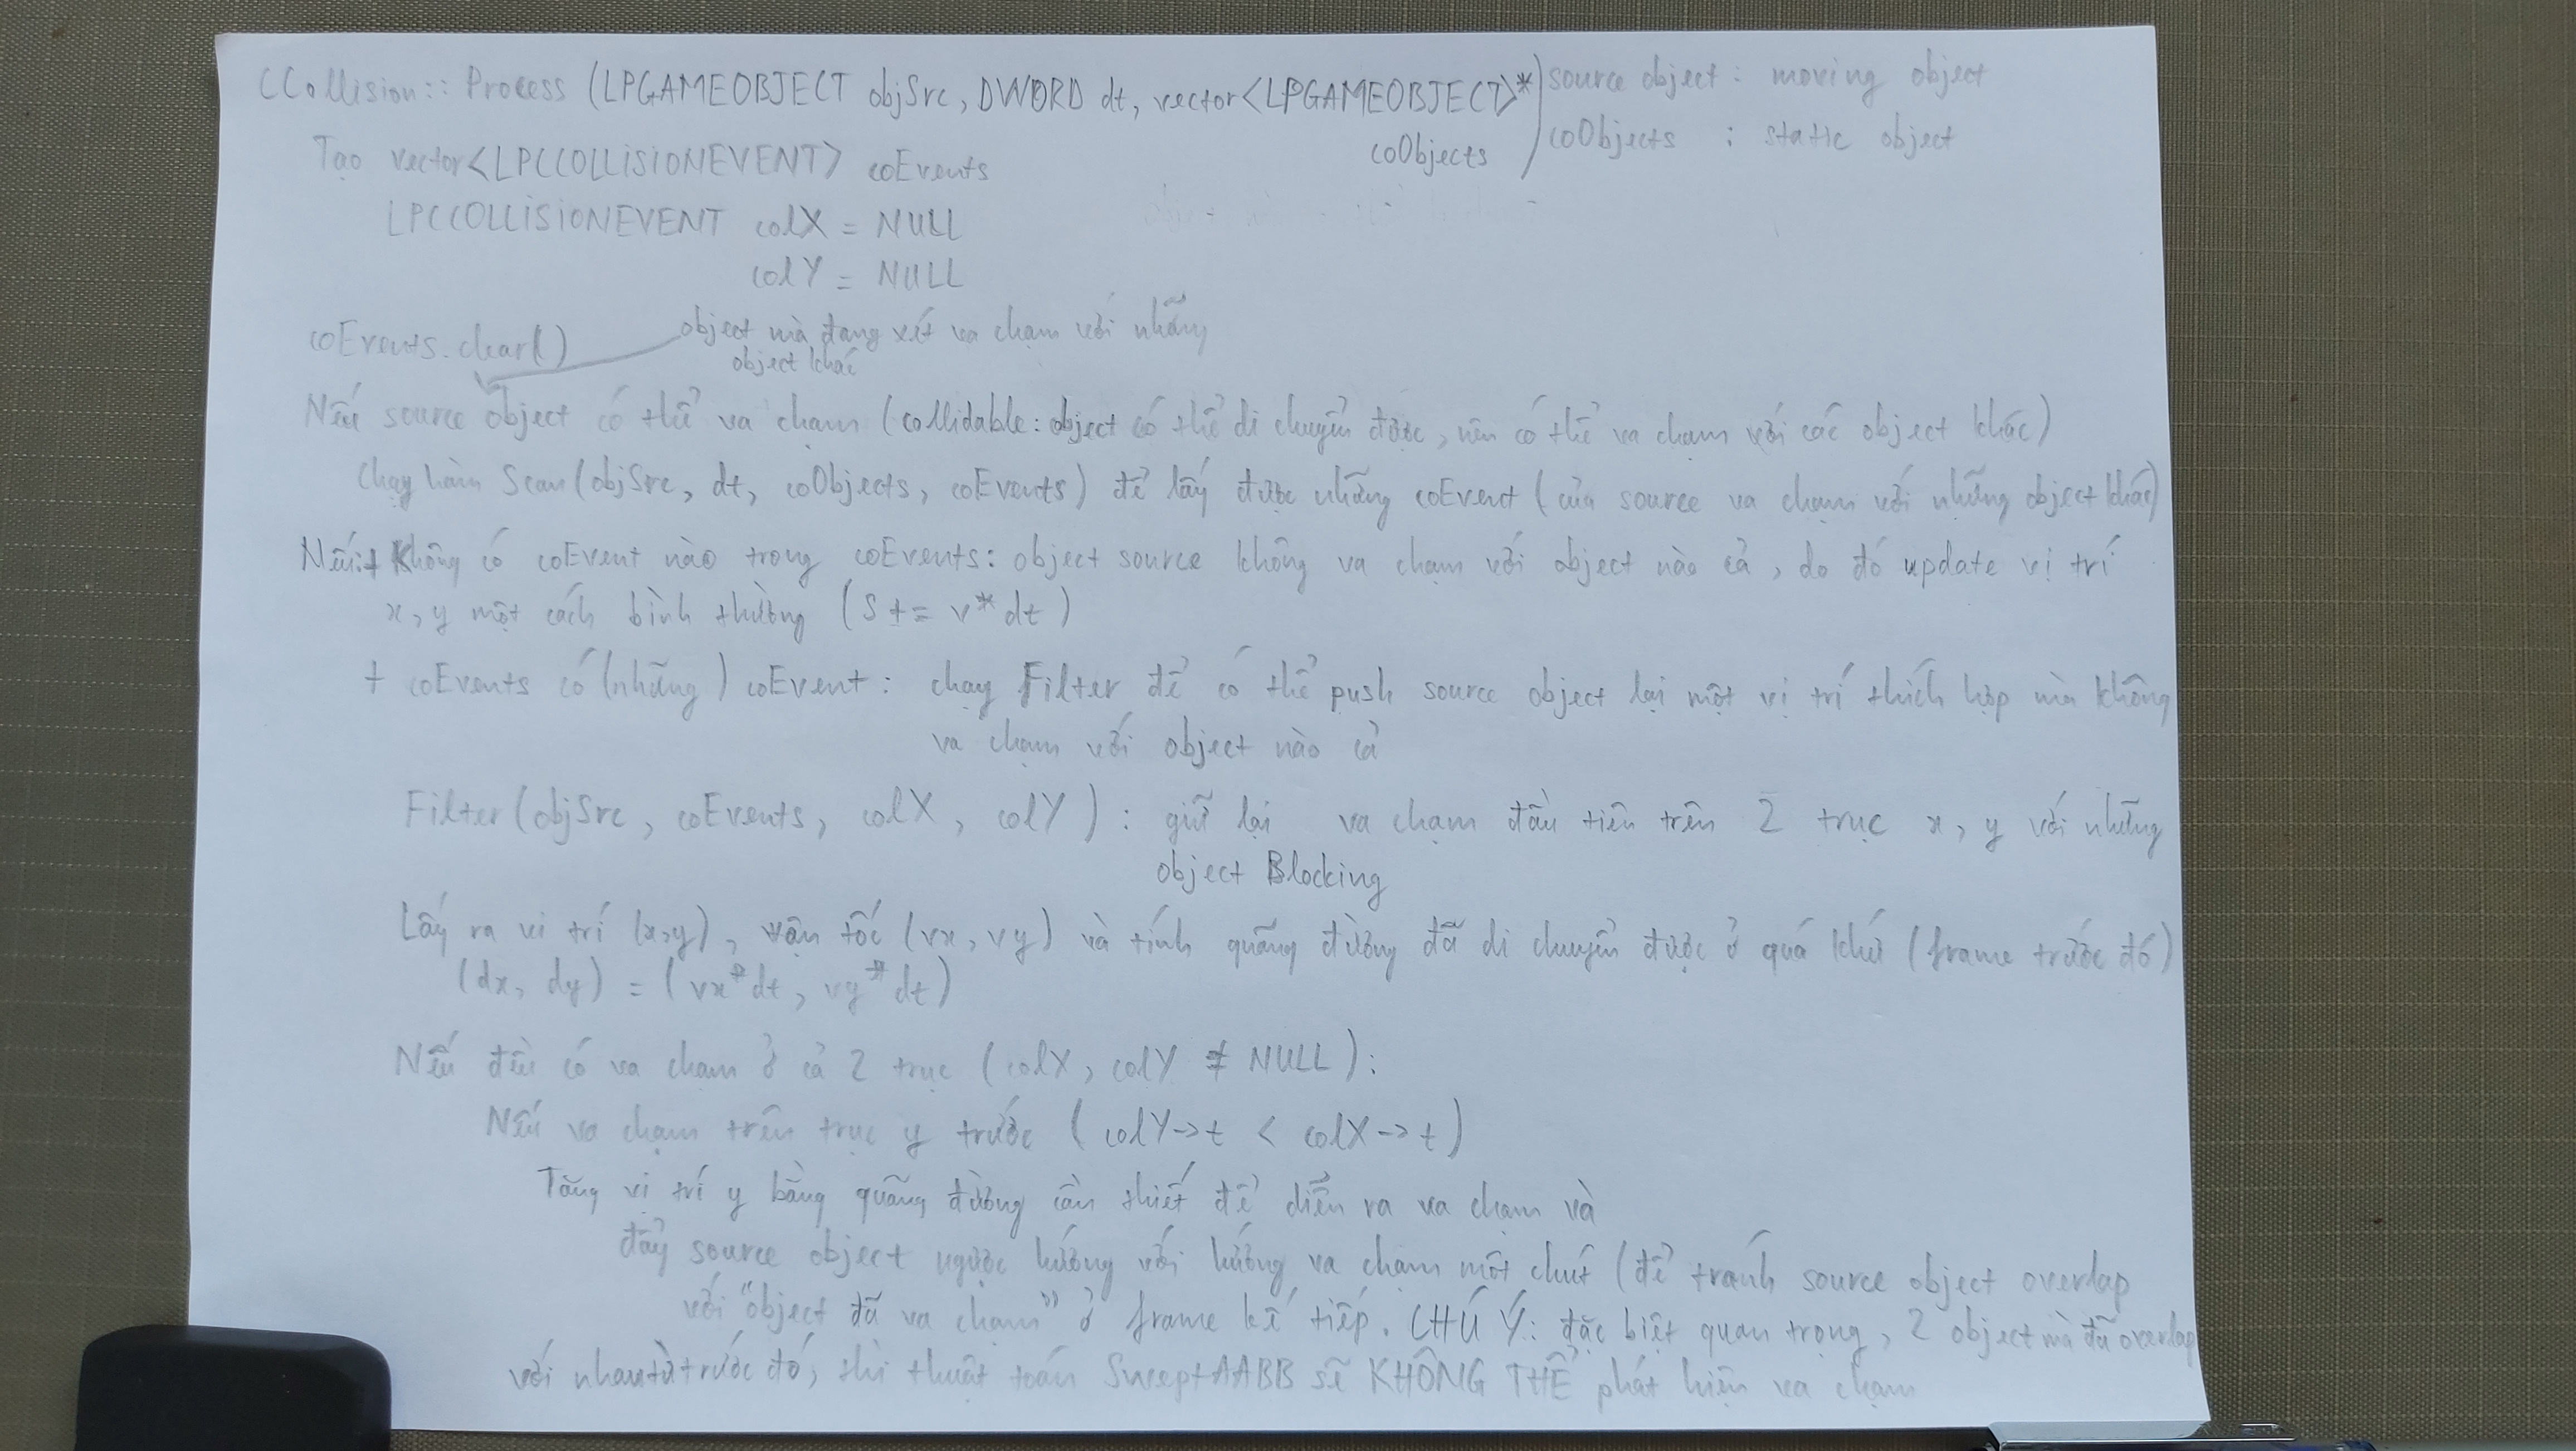 CCollision:: Process (LPGAMEOBJECT objSrc, DWORD dt, vector<LPGAMEOBJECT>*
coObjects )
source object : moving object
coObjects : static object
Tạo vector<LPCCOLLISIONEVENT> coEvents
LPCCOLLISIONEVENT colX = NULL
colY = NULL
coEvents.clear()
object mà đang xét va chạm với những
object khác
Nếu source object có thể va chạm (collidable: object có thể di chuyển được, nên có thể va chạm với các object khác)
Chạy hàm Scan(objSrc, dt, coObjects, coEvents) để lấy được những coEvent (của source va chạm với những object khác)
Nếu:+ Không có coEvent nào trong coEvents: object source không va chạm với object nào cả, do đó update vị trí
x, y một cách bình thường (S += v*dt)
+ coEvents có (những) coEvent: chạy Filter để có thể push source object lại một vị trí thích hợp mà không
va chạm với object nào cả
Filter(objSrc, coEvents, colX, colY) : giữ lại va chạm đầu tiên trên 2 trục x, y với những
object Blocking
Lấy ra vị trí (x,y), vận tốc (vx, vy) và tính quãng đường đã di chuyển được ở quá khứ (frame trước đó)
(dx, dy) = (vx*dt, vy*dt)
Nếu đều có va chạm ở cả 2 trục (colX, colY ≠ NULL):
Nếu va chạm trên trục y trước (colY->t < colX->t)
Tăng vị trí y bằng quãng đường cần thiết để diễn ra va chạm và
đẩy source object ngược hướng với hướng va chạm một chút (để tránh source object overlap
với "object đã va chạm" ở frame kế tiếp. CHÚ Ý: đặc biệt quan trọng, 2 object mà đã overlap
với nhau từ trước đó, thì thuật toán SweptAABB sẽ KHÔNG THỂ phát hiện va chạm